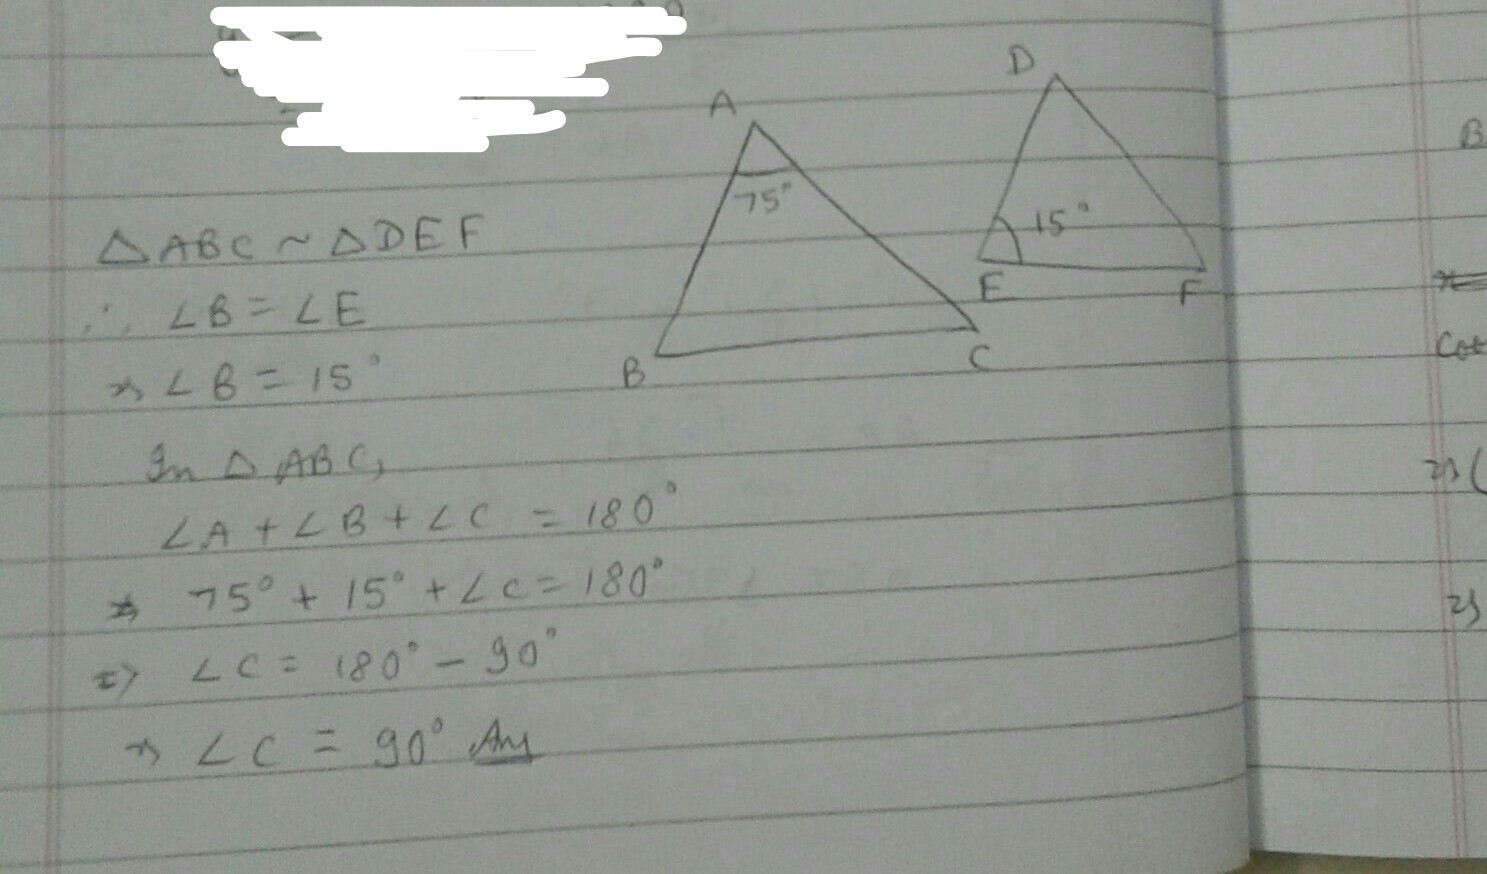 A
D
75°
15°
B
C
E
F
△ABC ~ △DEF
∴ ∠B = ∠E
⇒ ∠B = 15°
In △ ABC,
∠A + ∠B + ∠C = 180°
⇒ 75° + 15° + ∠C = 180°
⇒ ∠C = 180° - 90°
⇒ ∠C = 90° Ans
B
Cot
⇒ (
⇒